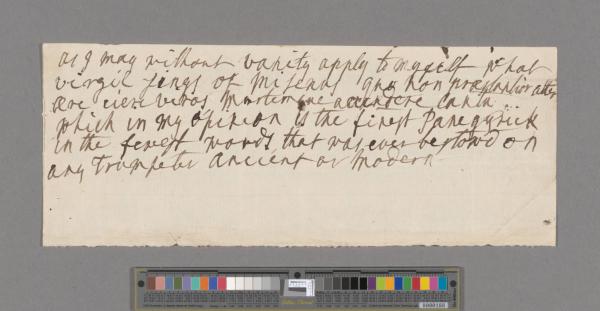 as I may without vanity apply to myself what
virgil sings of Misenus quo non præstantior alter
Ære ciere viros Martemque accendere cantu ..
which in my opinion is the finest Panegyrick
in the fewest words that was ever bestowd on
any Trumpeter Ancient or Modern